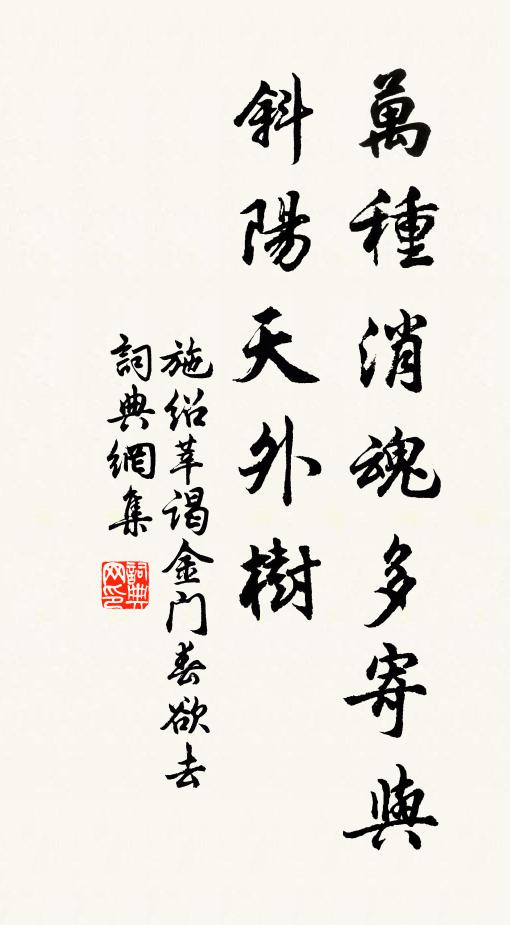 萬種消魂多寄與
斜陽天外樹
施紹莘謁金門春欲去
詞典網集
詞典网印